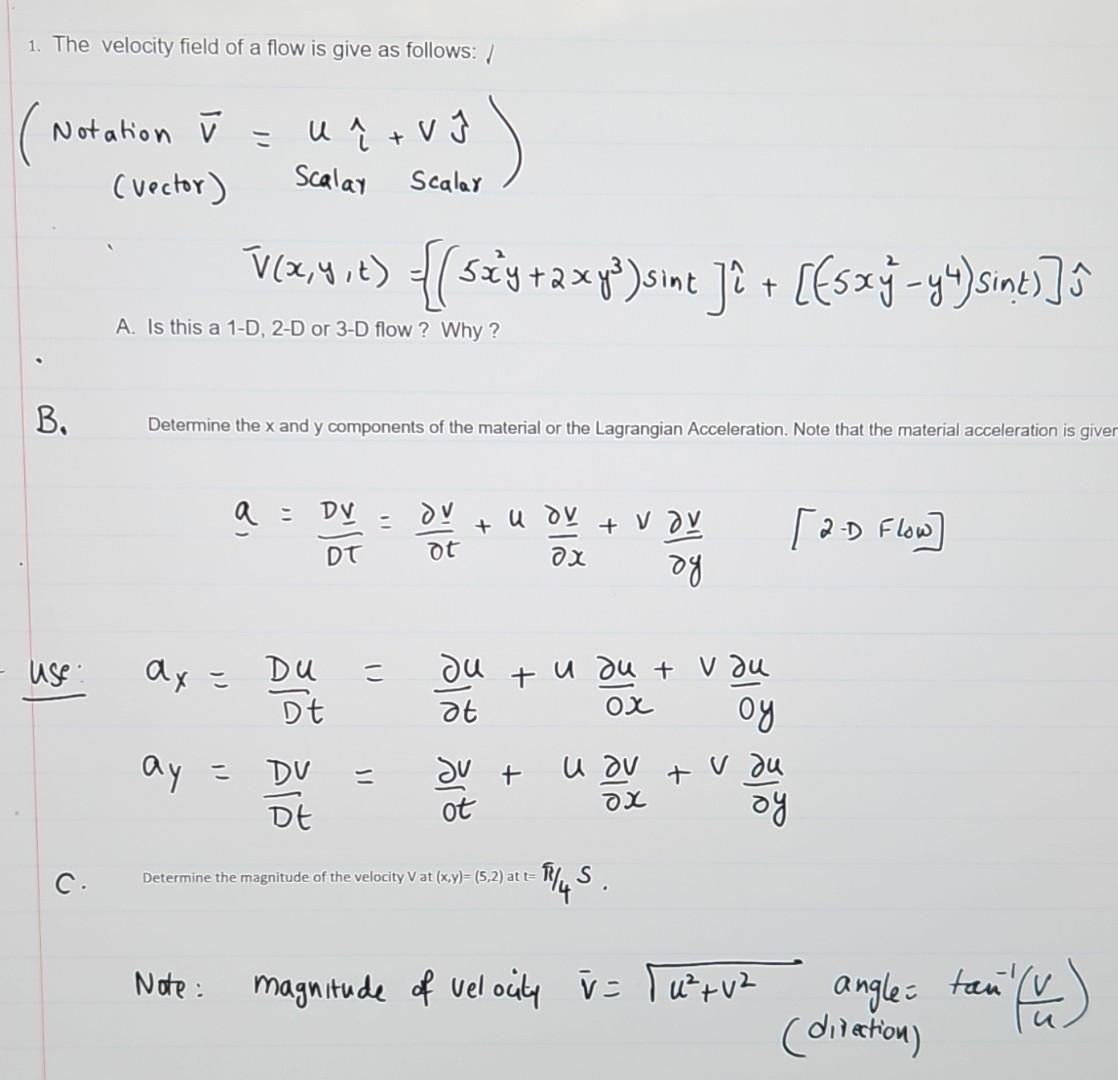 1. The velocity field of a flow is give as follows: /
(Notation V̄ = u î + v ĵ)
(vector) Scalar Scalar
V̄(x,y,t) = [(5x²y+2xy³)sint]î + [(-5xy²-y⁴)sint)]ĵ
A. Is this a 1-D, 2-D or 3-D flow ? Why ?
B. Determine the x and y components of the material or the Lagrangian Acceleration. Note that the material acceleration is given
a = DV/DT = ∂V/∂t + u ∂V/∂x + v ∂V/∂y [2-D Flow]
use: ax = Du/Dt = ∂u/∂t + u ∂u/∂x + v ∂u/∂y
ay = Dv/Dt = ∂v/∂t + u ∂v/∂x + v ∂u/∂y
C. Determine the magnitude of the velocity V at (x,y)= (5,2) at t= π/4 s.
Note: magnitude of velocity v̄ = √u²+v² angle= tan⁻¹(v/u)
(direction)